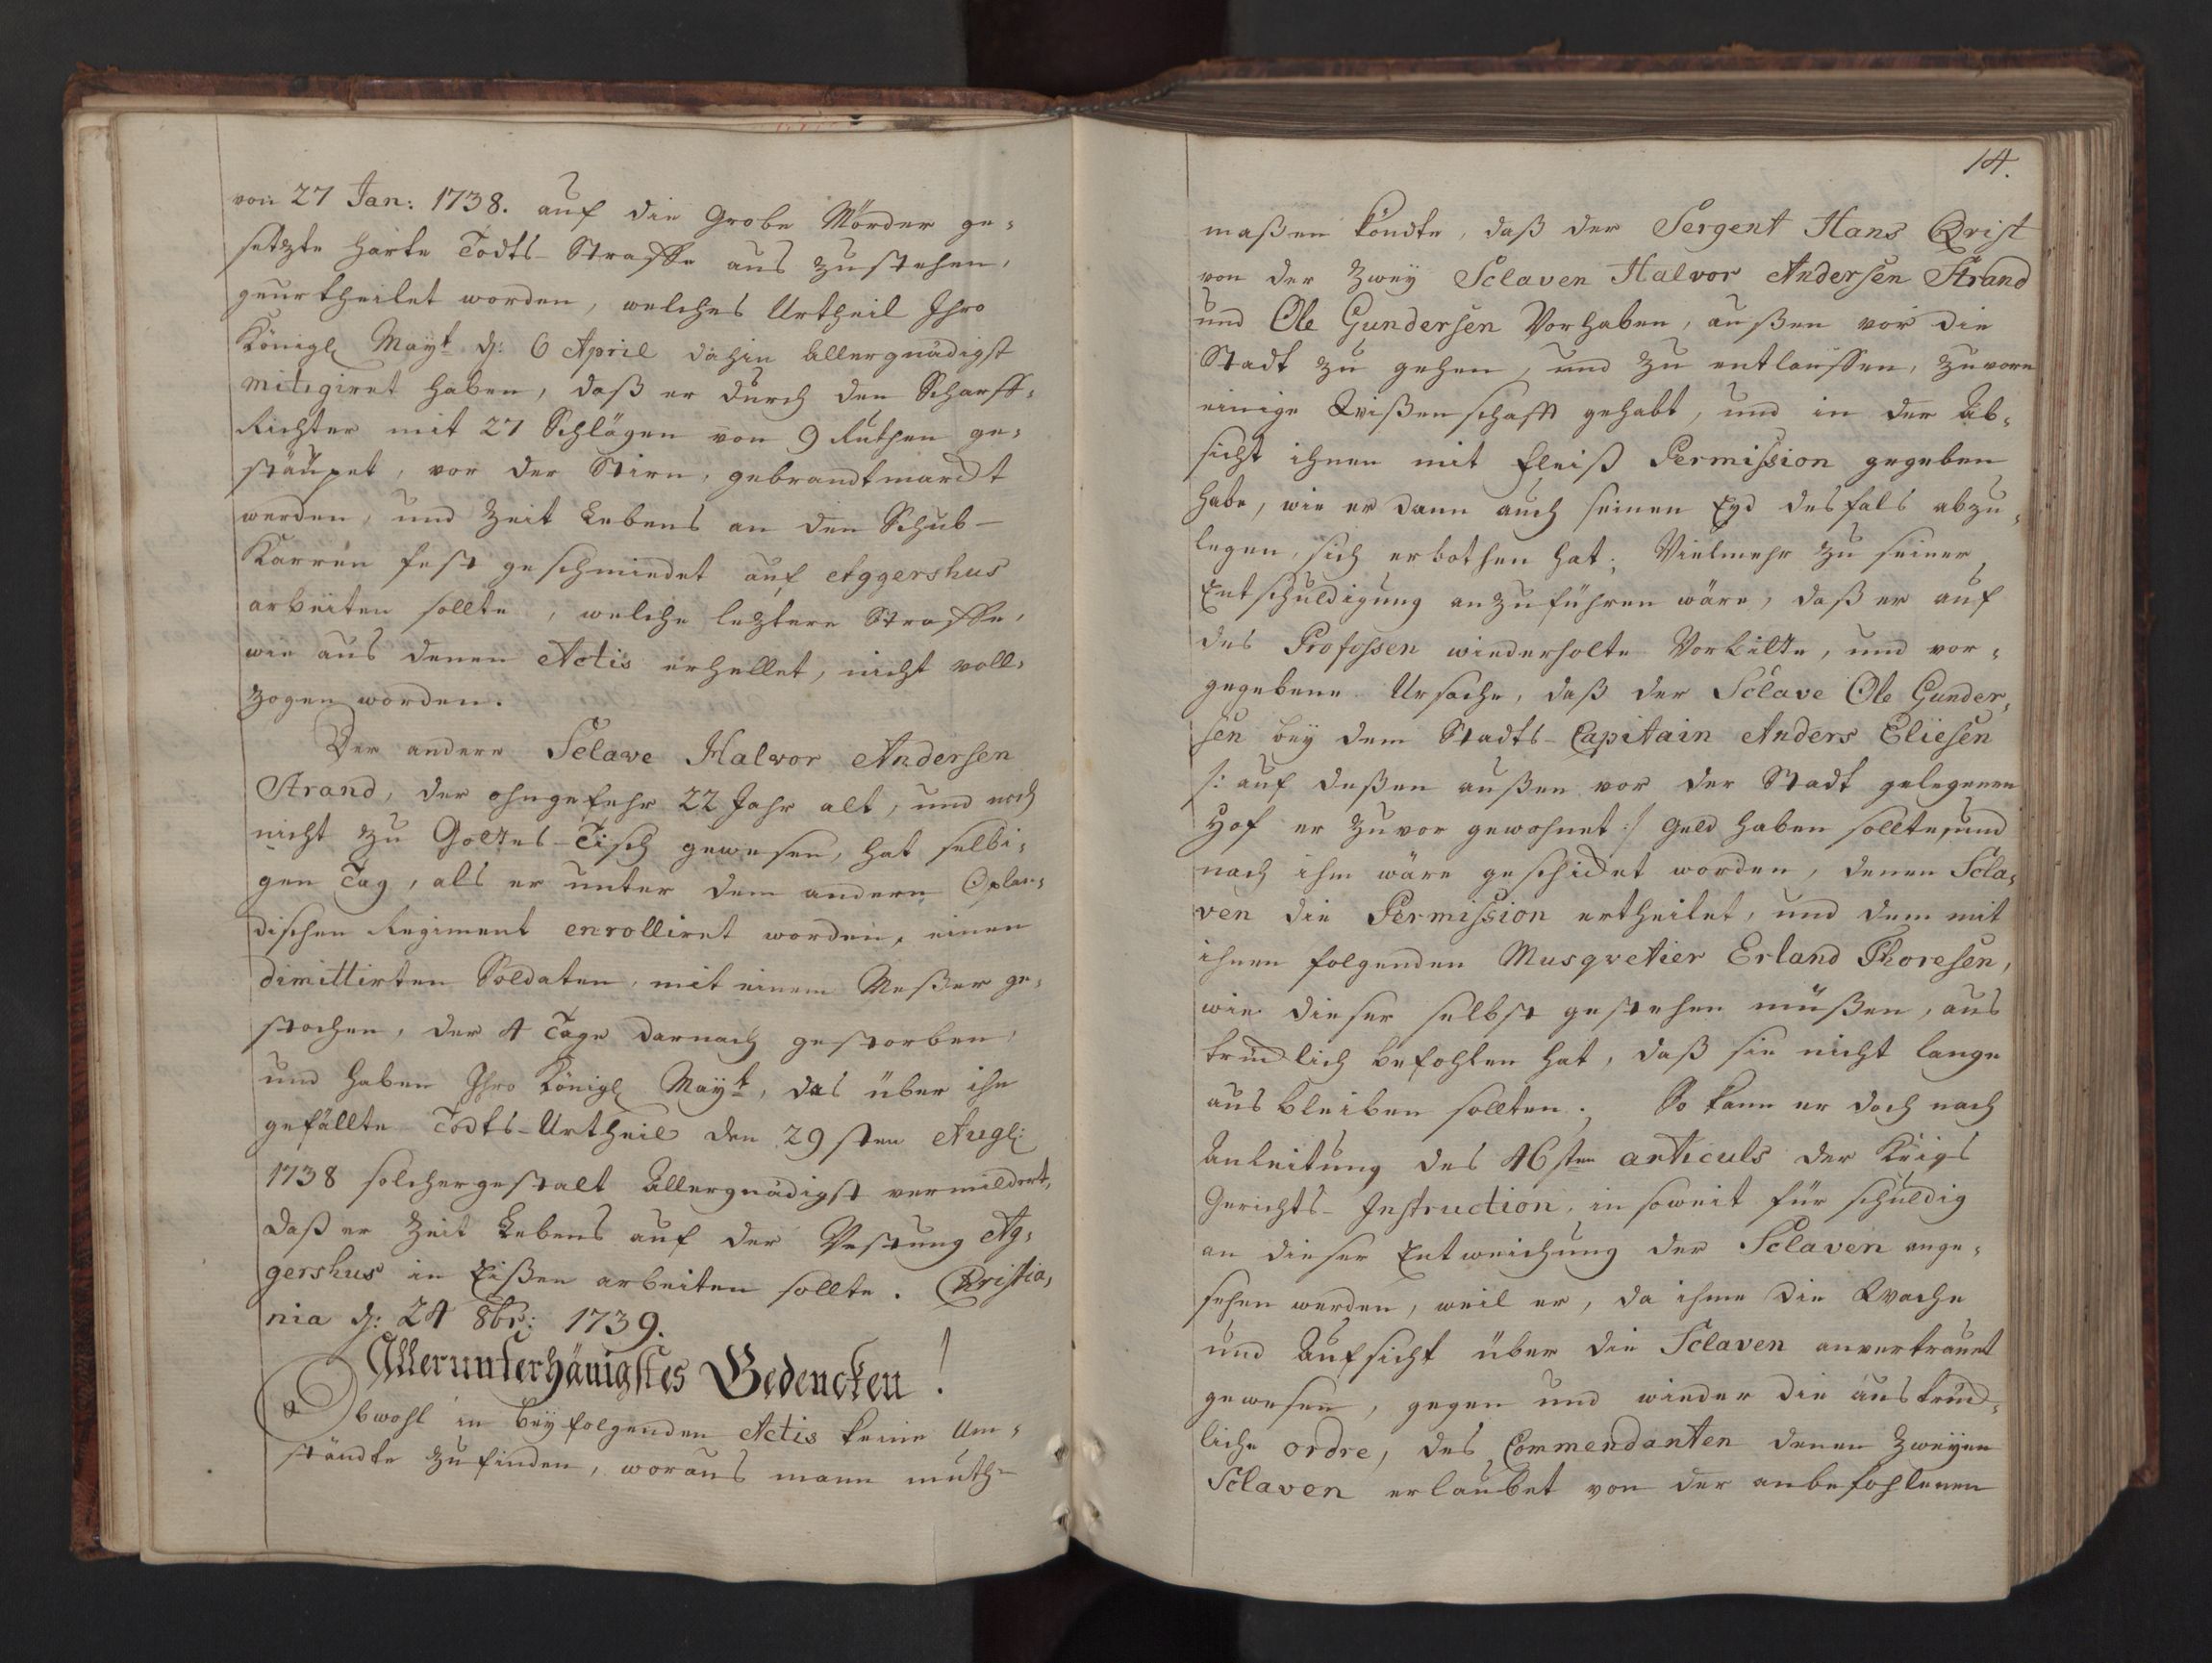 von 27 Jan: 1738. auf die Grobe Mörder ge-
setzte harte Todts-Straffe aus zustehen,
geurtheilet worden, welches Urtheil Ihro
Königl Mayt d: 6 April dahin allergnädigst
mitigiret haben, daß er durch den Scharff-
Richter mit 27 Schlägen von 9 Ruthen ge-
stäupet, vor der Stirn, gebrandtmarckt
werden, und Zeit Lebens an den Schub-
Karren fest geschmiedet auf Aggershus
arbeiten sollte, welche leztere Straffe,
wie aus denen Actis erhellet, nicht voll-
zogen worden.
Der andere Sclave Halvor Andersen
Strand, der ohngefehr 22 Jahr alt, und noch
nicht zu Gottes-Tisch gewesen, hat selbi-
gen Tag, als er unter dem andern Oplan-
dischen Regiment enrolliret worden, einen
dimittirten Soldaten, mit einem Meßer ge-
stochen, der 4 Tage darnach gestorben,
und haben Ihro Königl Mayt, das über ihn
gefällte Todts-Urtheil den 29sten Augl:
1738 solchergestalt Allergnädigst vermildert,
daß er Zeit Lebens auf der Vestung Ag-
gershus in Eißen arbeiten sollte. Christia-
nia d: 24 8br: 1739.
Allerunterthänigstes Bedencken!
Obwohl in beyfolgenden Actis keine Um-
ständte zu finden, woraus mann muth-
14.
maßen köndte, daß der Sergent Hans Qvist
von der Zwey Sclaven Halvor Andersen Strand
und Ole Gundersen Vorhaben, außen vor die
Stadt zu gehen, und zu entlauffen, zuvorn
einige Wißenschafft gehabt, und in der Ab-
sicht ihnen mit Fleiß Permission gegeben
habe, wie er dann auch seinen Eyd desfals abzu-
legen, sich erbothen hat; Vielmehr zu seiner
Entschuldigung anzuführen wäre, daß er auf
des Profossen wiederholte Vorbitte, und vor-
gegebene Ursache, daß der Sclave Ole Gunder-
sen bey dem Stadts-Capitain Anders Eliesen
/: auf deßen außen vor der Stadt gelegenen
Hof er zuvor gewohnet :/ Geld haben sollte, und
nach ihm wäre geschicket worden, denen Scla-
ven die Permission ertheilet, und dem mit
ihnen folgenden Musqvetier Erland Thoresen,
wie dieser selbst gestehen müßen, aus
trücklich befohlen hat, daß sie nicht lange
ausbleiben sollten; So kann er doch nach
Anleitung des 46sten articuls der Krigs
Gerichts-Instruction, in soweit für schuldig
an dieser Entweichung der Sclaven ange-
sehen werden, weil er, da ihme die Wache
und Aufsicht über die Sclaven anvertrauet
gewesen, gegen und wieder die austrück-
liche ordre, des Commendanten denen Zweyen
Sclaven erlaubet von der anbefohlenen